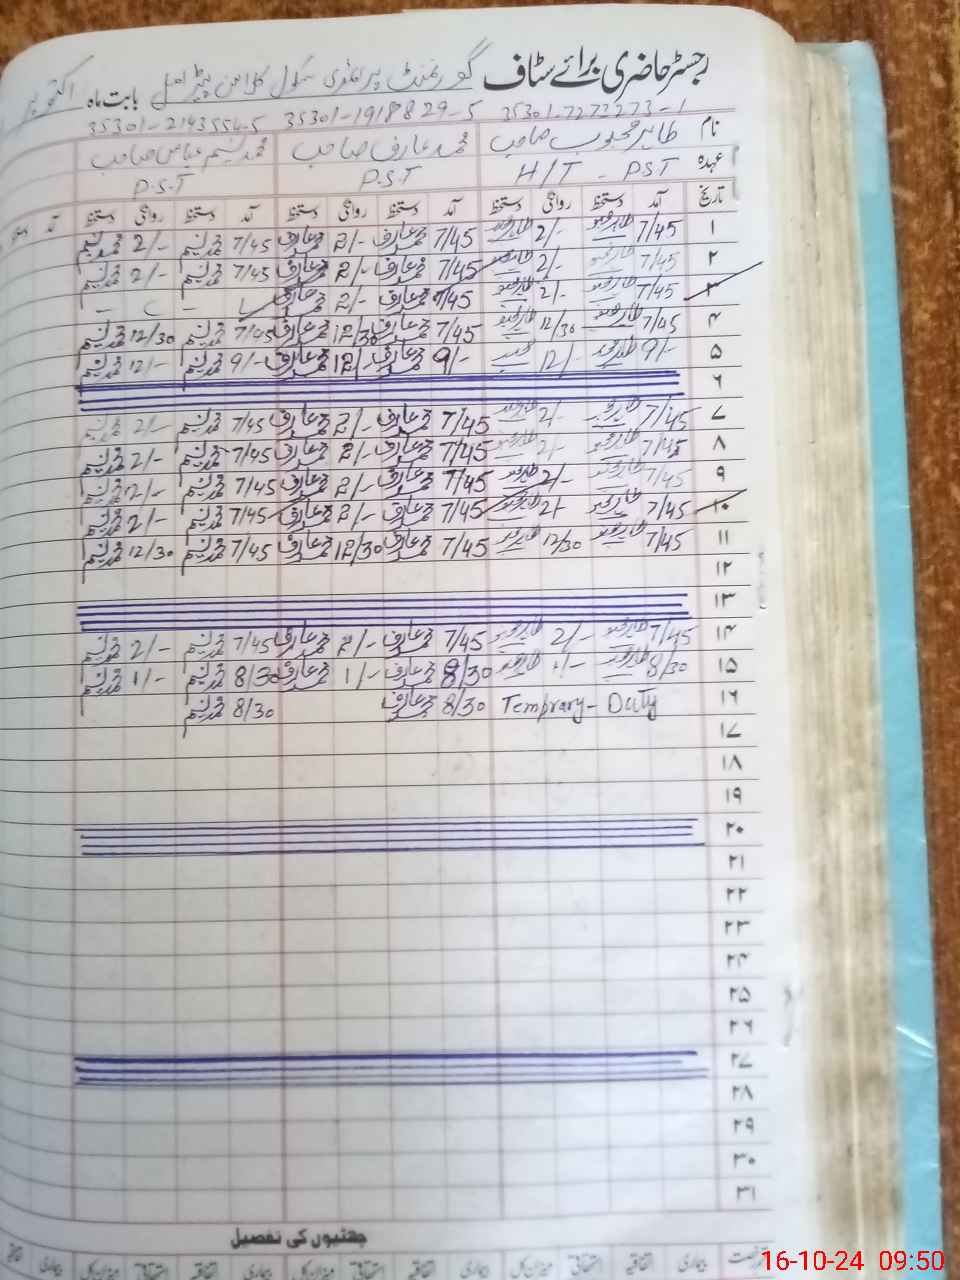 رجسٹر حاضری برائے سٹاف گورنمنٹ پرائمری سکول بابت ماہ اکتوبر
35301-7272273-1 35301-1918829-5 35301-2143554-5
نام طاہر محبوب صاحب محمد عارف صاحب محمد نسیم عباس صاحب
عہدہ H/T - PST P.S.T P.S.T
تاریخ آمد دستخط روانگی دستخط آمد دستخط روانگی دستخط آمد دستخط روانگی دستخط آمد
۱ 7/45 2/- 7/45 محمد عارف 2/- محمد عارف 7/45 محمد نسیم 2/- محمد نسیم
۲ 7/45 2/- 7/45 محمد عارف 2/- محمد عارف 7/45 محمد نسیم 2/- محمد نسیم
۳ 7/45 2/- 7/45 محمد عارف 2/- محمد عارف
۴ 7/45 12/30 7/45 محمد عارف 12/30 محمد عارف 7/45 محمد نسیم 12/30 محمد نسیم
۵ 9/- 12/- 9/- محمد عارف 12/- محمد عارف 9/- محمد نسیم 12/- محمد نسیم
۶
۷ 7/45 2/- 7/45 محمد عارف 2/- محمد عارف 7/45 محمد نسیم 2/- محمد نسیم
۸ 7/45 2/- 7/45 محمد عارف 2/- محمد عارف 7/45 محمد نسیم 2/- محمد نسیم
۹ 7/45 2/- 7/45 محمد عارف 2/- محمد عارف 7/45 محمد نسیم 2/- محمد نسیم
۱۰ 7/45 2/- 7/45 محمد عارف 2/- محمد عارف 7/45 محمد نسیم 2/- محمد نسیم
۱۱ 7/45 12/30 7/45 محمد عارف 12/30 محمد عارف 7/45 محمد نسیم 12/30 محمد نسیم
۱۲
۱۳
۱۴ 7/45 2/- 7/45 محمد عارف 2/- محمد عارف 7/45 محمد نسیم 2/- محمد نسیم
۱۵ 8/30 1/- 8/30 محمد عارف 1/- محمد عارف 8/30 محمد نسیم 1/- محمد نسیم
۱۶ Temprary - Duty 8/30 محمد عارف 8/30 محمد نسیم
۱۷
۱۸
۱۹
۲۰
۲۱
۲۲
۲۳
۲۴
۲۵
۲۶
۲۷
۲۸
۲۹
۳۰
۳۱
چھٹیوں کی تفصیل
بیماری اتفاقیہ استحقاقی میزان کل بیماری اتفاقیہ استحقاقی میزان کل بیماری اتفاقیہ استحقاقی میزان کل بیماری
16-10-24 09:50